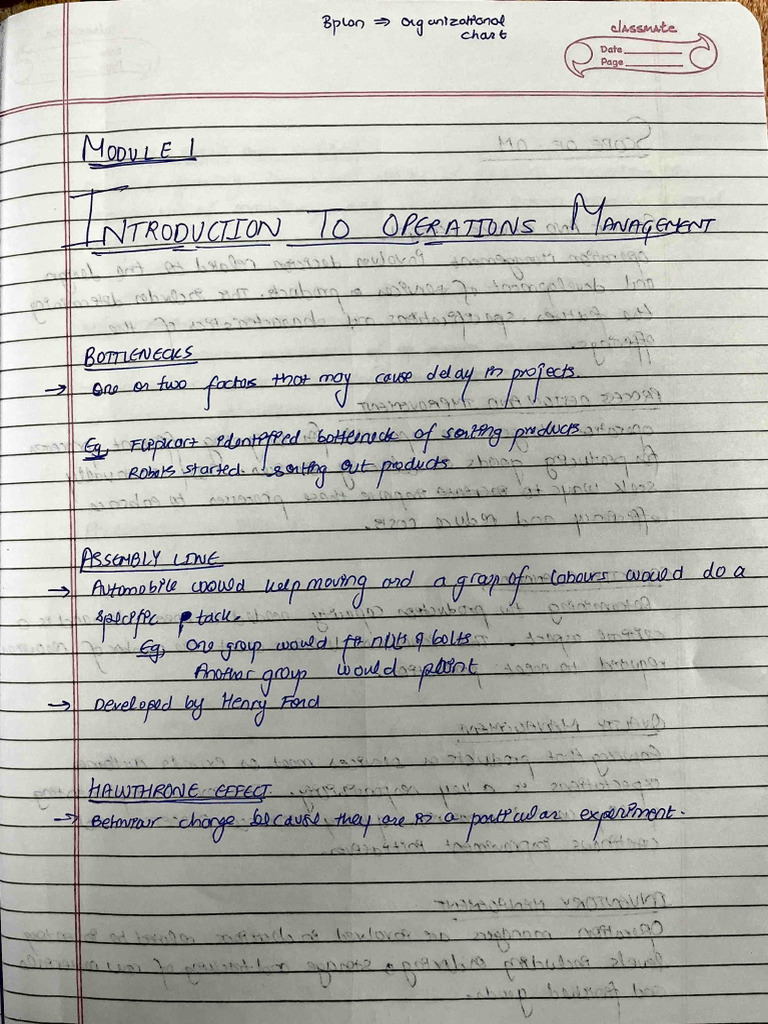 Bplan ⇒ organizational
chart
classmate
Date
Page
MODULE 1
INTRODUCTION TO OPERATIONS MANAGEMENT
BOTTLENECKS
→ One or two factors that may cause delay in projects.
Eg, Flipkart identified bottleneck of sorting products
Robots started sorting out products
ASSEMBLY LINE
→ Automobile would keep moving and a group of labours would do a
specific task.
Eg, One group would fit nuts & bolts
Another group would paint
→ Developed by Henry Ford
HAWTHRONE EFFECT
→ Behaviour change because they are in a particular experiment.